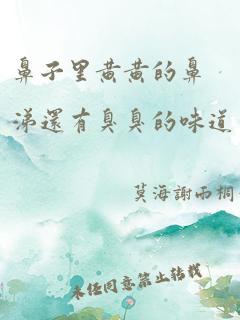 鼻子里黄黄的鼻
涕還有臭臭的味道
莫海謝雨桐
未经同意禁止转载